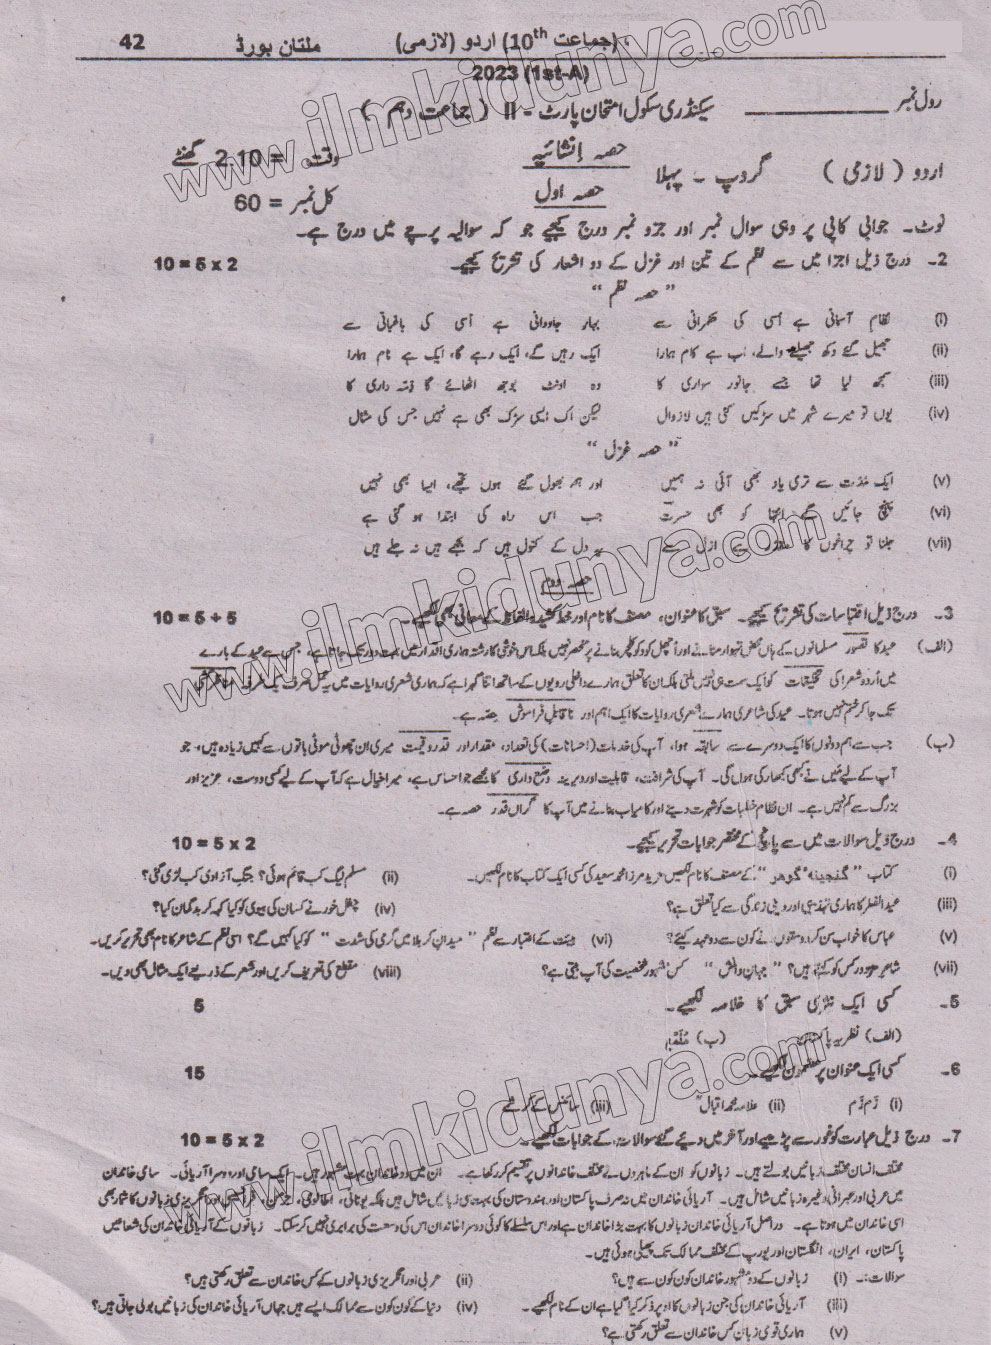 42 ملتان بورڈ (جماعت 10th) اردو (لازمی)
2023 (1st-A)
رول نمبر ________ سیکنڈری سکول امتحان پارٹ - II ( جماعت دہم )
اردو ( لازمی ) گروپ ۔ پہلا حصہ اِنشائیہ وقت = 2.10 گھنٹے
حصہ اول کل نمبر = 60
نوٹ۔ جوابی کاپی پر وہی سوال نمبر اور جزو نمبر درج کیجیے جو کہ سوالیہ پرچے میں درج ہے۔
2۔ درج ذیل اجزا میں سے نظم کے تین اور غزل کے دو اشعار کی تشریح کیجیے۔ 10 = 5 x 2
" حصہ نظم "
(i) نظام آسمانی ہے اُسی کی حکمرانی سے بہار جاودانی ہے اُسی کی باغبانی سے
(ii) جھیل گئے دکھ جھیلنے والے، اب ہے کام ہمارا ایک رہیں گے، ایک رہے گا، ایک ہے نام ہمارا
(iii) سمجھ لیا تھا جسے جانور سواری کا وہ اونٹ بوجھ اٹھائے گا ذِمّہ داری کا
(iv) یوں تو میرے شہر میں سڑکیں کئی ہیں لازوال لیکن اک ایسی سڑک بھی ہے نہیں جس کی مثال
" حصہ غزل "
(v) ایک مُدّت سے تری یاد بھی آئی نہ ہمیں اور ہم بھول گئے ہوں تجھے، ایسا بھی نہیں
(vi) پہنچ جائیں گے انتہا کو بھی حسرتؔ جب اس راہ کی ابتدا ہو گئی ہے
(vii) جلنا تو چراغوں کا مقدر ہے ازل سے یہ دل کے کنول ہیں کہ بجھے ہیں نہ جلے ہیں
حصہ دوم
3۔ درج ذیل اقتباسات کی تشریح کیجیے۔ سبق کا عنوان، مصنف کا نام اور خط کشیدہ الفاظ کے معانی بھی لکھیے۔ 10 = 5 + 5
(الف) عید کا تصور مسلمانوں کے ہاں محض تہوار منانے اور اُچھل کود کلچر بنانے پر منحصر نہیں بلکہ اس خوشی کا رشتہ ہماری اقدار میں بہت دور تک جاتا ہے، جس سے عید کے بارے
میں اُردو شعرا کی تخلیقات کو ایک سمت ہی نہیں ملتی بلکہ ان کا تعلق ہمارے داخلی رویوں کے ساتھ اتنا گہرا ہے کہ ہماری شعری روایات میں یہ عمل صرف ایک طرف
تک جا کر ختم نہیں ہوتا۔ عید کی شاعری ہمارے شعری روایات کا ایک اہم اور ناقابلِ فراموش حِصّہ ہے۔
(ب) جب سے ہم دونوں کا ایک دوسرے سے سابقہ ہوا، آپ کی خدمات (احسانات) کی تعداد، مقدار اور قدر و قیمت میری ان چھوٹی موٹی باتوں سے کہیں زیادہ ہیں، جو
آپ کے لیے مَیں نے کبھی کبھار کی ہوں گی۔ آپ کی شرافت، قابلیت اور دیرینہ وضع داری کا مجھے جو احساس ہے، میرا خیال ہے کہ آپ کے لیے کسی دوست، عزیز اور
بزرگ سے کم نہیں ہے۔ ان نظام خطبات کو شہرت دینے اور کامیاب بنانے میں آپ کا گراں قدر حصہ ہے۔
4۔ درج ذیل سوالات میں سے پانچ کے مختصر جوابات تحریر کیجیے۔ 10 = 5 x 2
(i) کتاب "گنجینۂ گوہر" کے مصنف کا نام لکھیں مزید مرزا محمد سعید کی کسی ایک کتاب کا نام لکھیں۔ (ii) مسلم لیگ کب قائم ہوئی؟ جنگِ آزادی کب لڑی گئی؟
(iii) عید الفطر کا ہماری تہذیبی اور دینی زندگی سے کیا تعلق ہے؟ (iv) چغل خور نے کسان کی بیوی کو کیا کہہ کر بدگمان کیا؟
(v) عباس کا خواب سن کر دوستوں نے کون سے دو عہد کیے؟ (vi) ہیئت کے اعتبار سے نظم "میدانِ کربلا میں گرمی کی شدت" کو کیا کہیں گے؟ اسی نظم کے شاعر کا نام بھی تحریر کریں۔
(vii) شاعرِ مزدور کس کو کہتے ہیں؟ "جہانِ دانش" کس مشہور شخصیت کی آپ بیتی ہے؟ (viii) مقطع کی تعریف کریں اور شعر کے ذریعے ایک مثال بھی دیں۔
5۔ کسی ایک نثری سبق کا خلاصہ لکھیے۔ 5
(الف) نظریہ پاکستان (ب) مُلَمّع
6۔ کسی ایک عنوان پر مضمون لکھیے۔ 15
(i) زَم زَم (ii) علامہ محمد اقبالؒ (iii) سائنس کے کرشمے
7۔ درج ذیل عبارت کو غور سے پڑھیے اور آخر میں دیے گئے سوالات کے جوابات لکھیے۔ 10 = 5 x 2
مختلف انسان مختلف زبانیں بولتے ہیں۔ زبانوں کو ان کے ماہروں نے مختلف خاندانوں پر تقسیم کر رکھا ہے۔ ان میں دو خاندان بہت مشہور ہیں۔ ایک سامی اور دوسرا آریائی۔ سامی خاندان
میں عربی اور عبرانی وغیرہ زبانیں شامل ہیں۔ آریائی خاندان میں نہ صرف پاکستان اور ہندوستان کی بہت سی زبانیں شامل ہیں بلکہ یونانی، اطالوی، جرمن، فرانسیسی اور انگریزی زبانوں کا شمار بھی
اسی خاندان میں ہوتا ہے۔ دراصل آریائی خاندان زبانوں کا بہت بڑا خاندان ہے اور اس سلسلے کا کوئی دوسرا خاندان اس کی وسعت کی برابری نہیں کر سکتا۔ زبانوں کے آریائی خاندان کی شعاعیں
پاکستان، ایران، انگلستان اور یورپ کے مختلف ممالک تک پھیلی ہوئی ہیں۔
سوالات:۔ (i) زبانوں کے دو مشہور خاندان کون کون سے ہیں؟ (ii) عربی اور انگریزی زبانوں کے کس خاندان سے تعلق رکھتی ہیں؟
(iii) آریائی خاندان کی جن زبانوں کا اوپر ذکر کیا گیا ہے ان کے نام لکھیے۔ (iv) دنیا کے کون کون سے ممالک ایسے ہیں جہاں آریائی خاندان کی زبانیں بولی جاتی ہیں؟
(v) ہماری قومی زبان کس خاندان سے تعلق رکھتی ہے؟
www.ilmkidunya.com
www.ilmkidunya.com
www.ilmkidunya.com